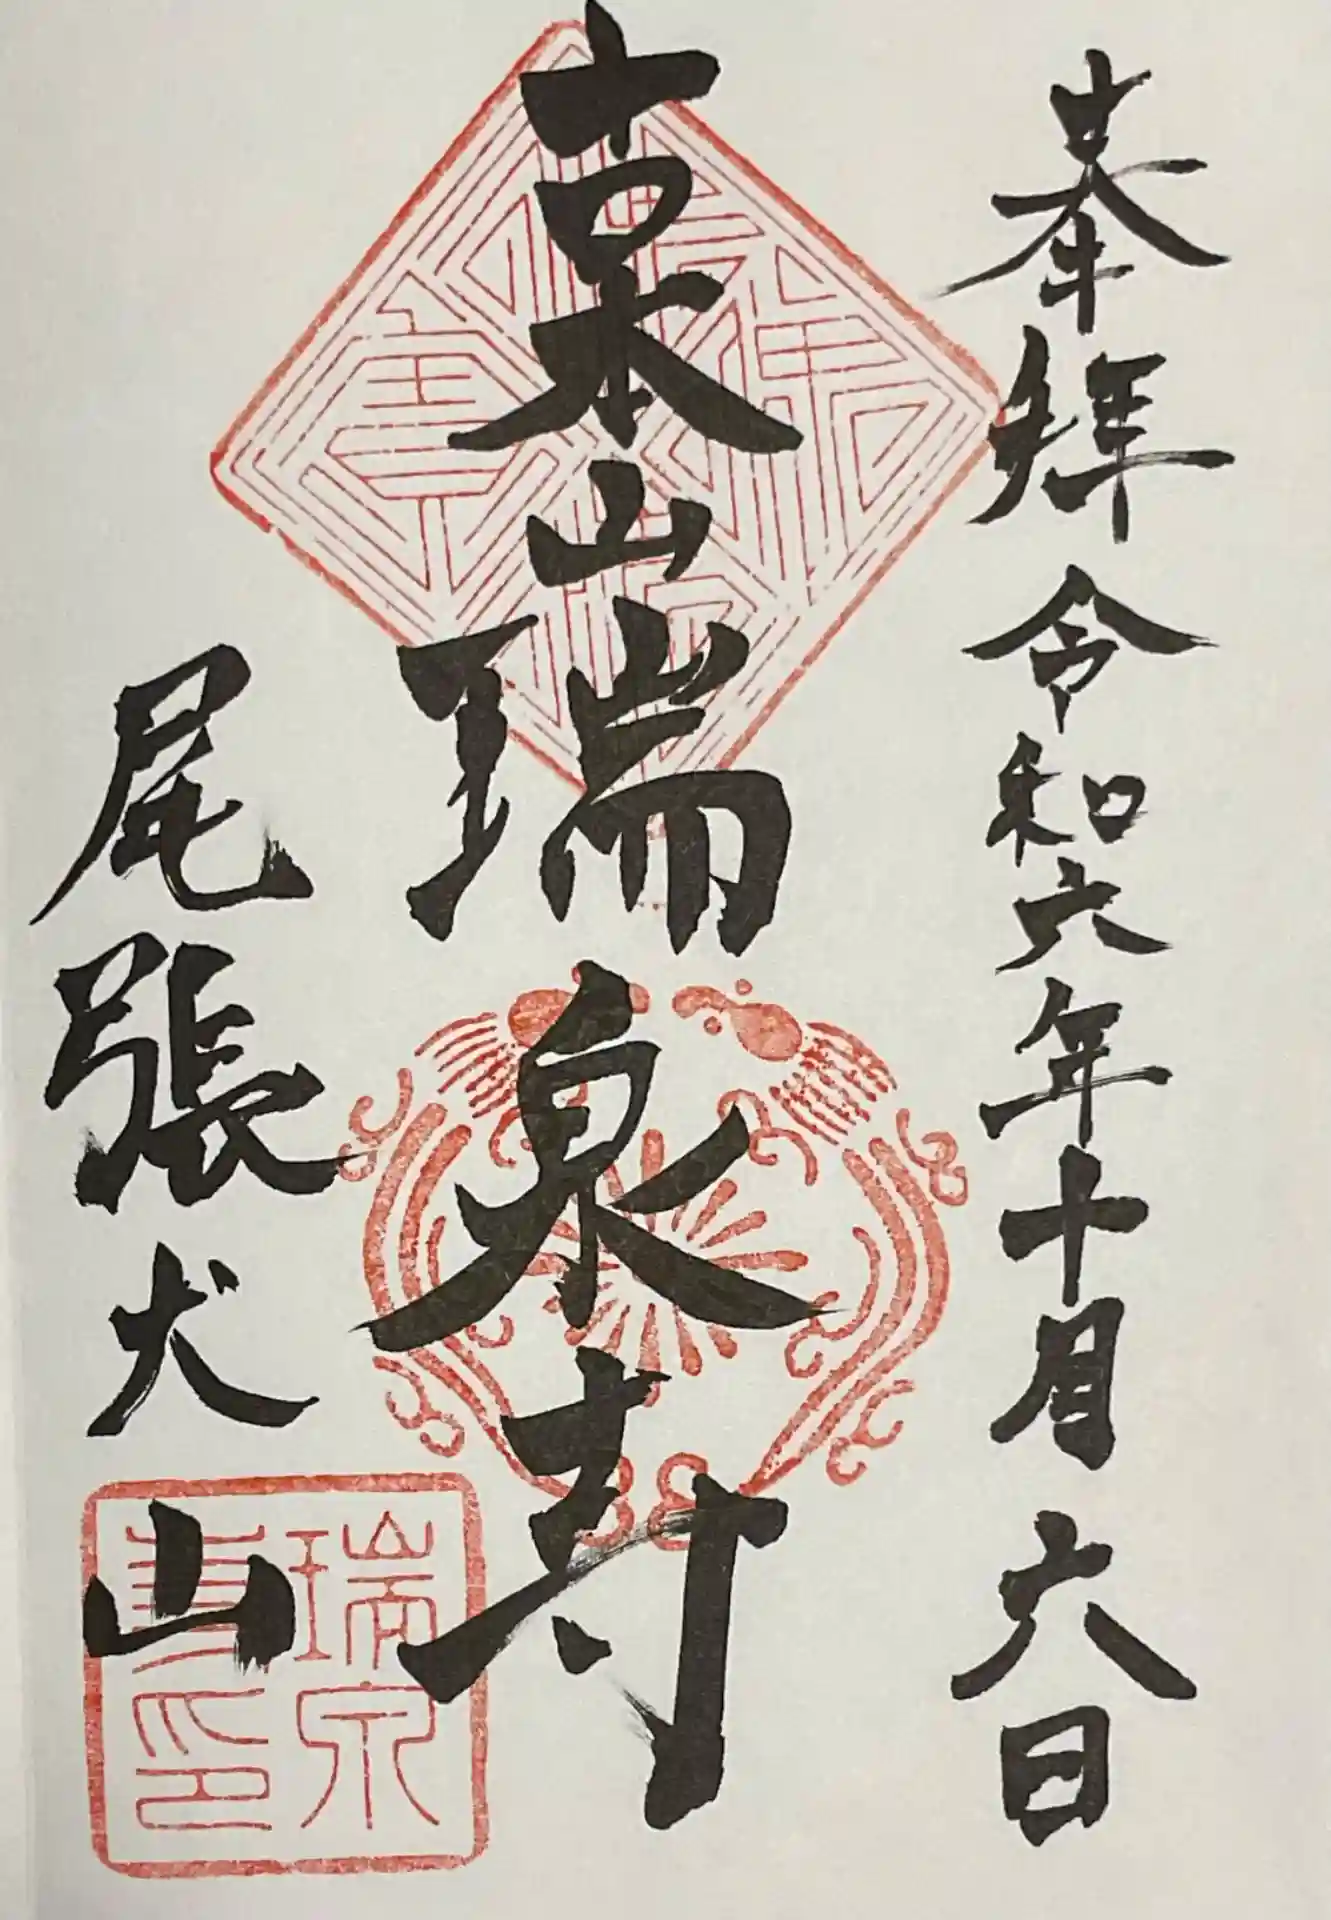 奉拜 令和六年十月六日
東山瑞泉寺
尾張犬山
瑞泉
寺印